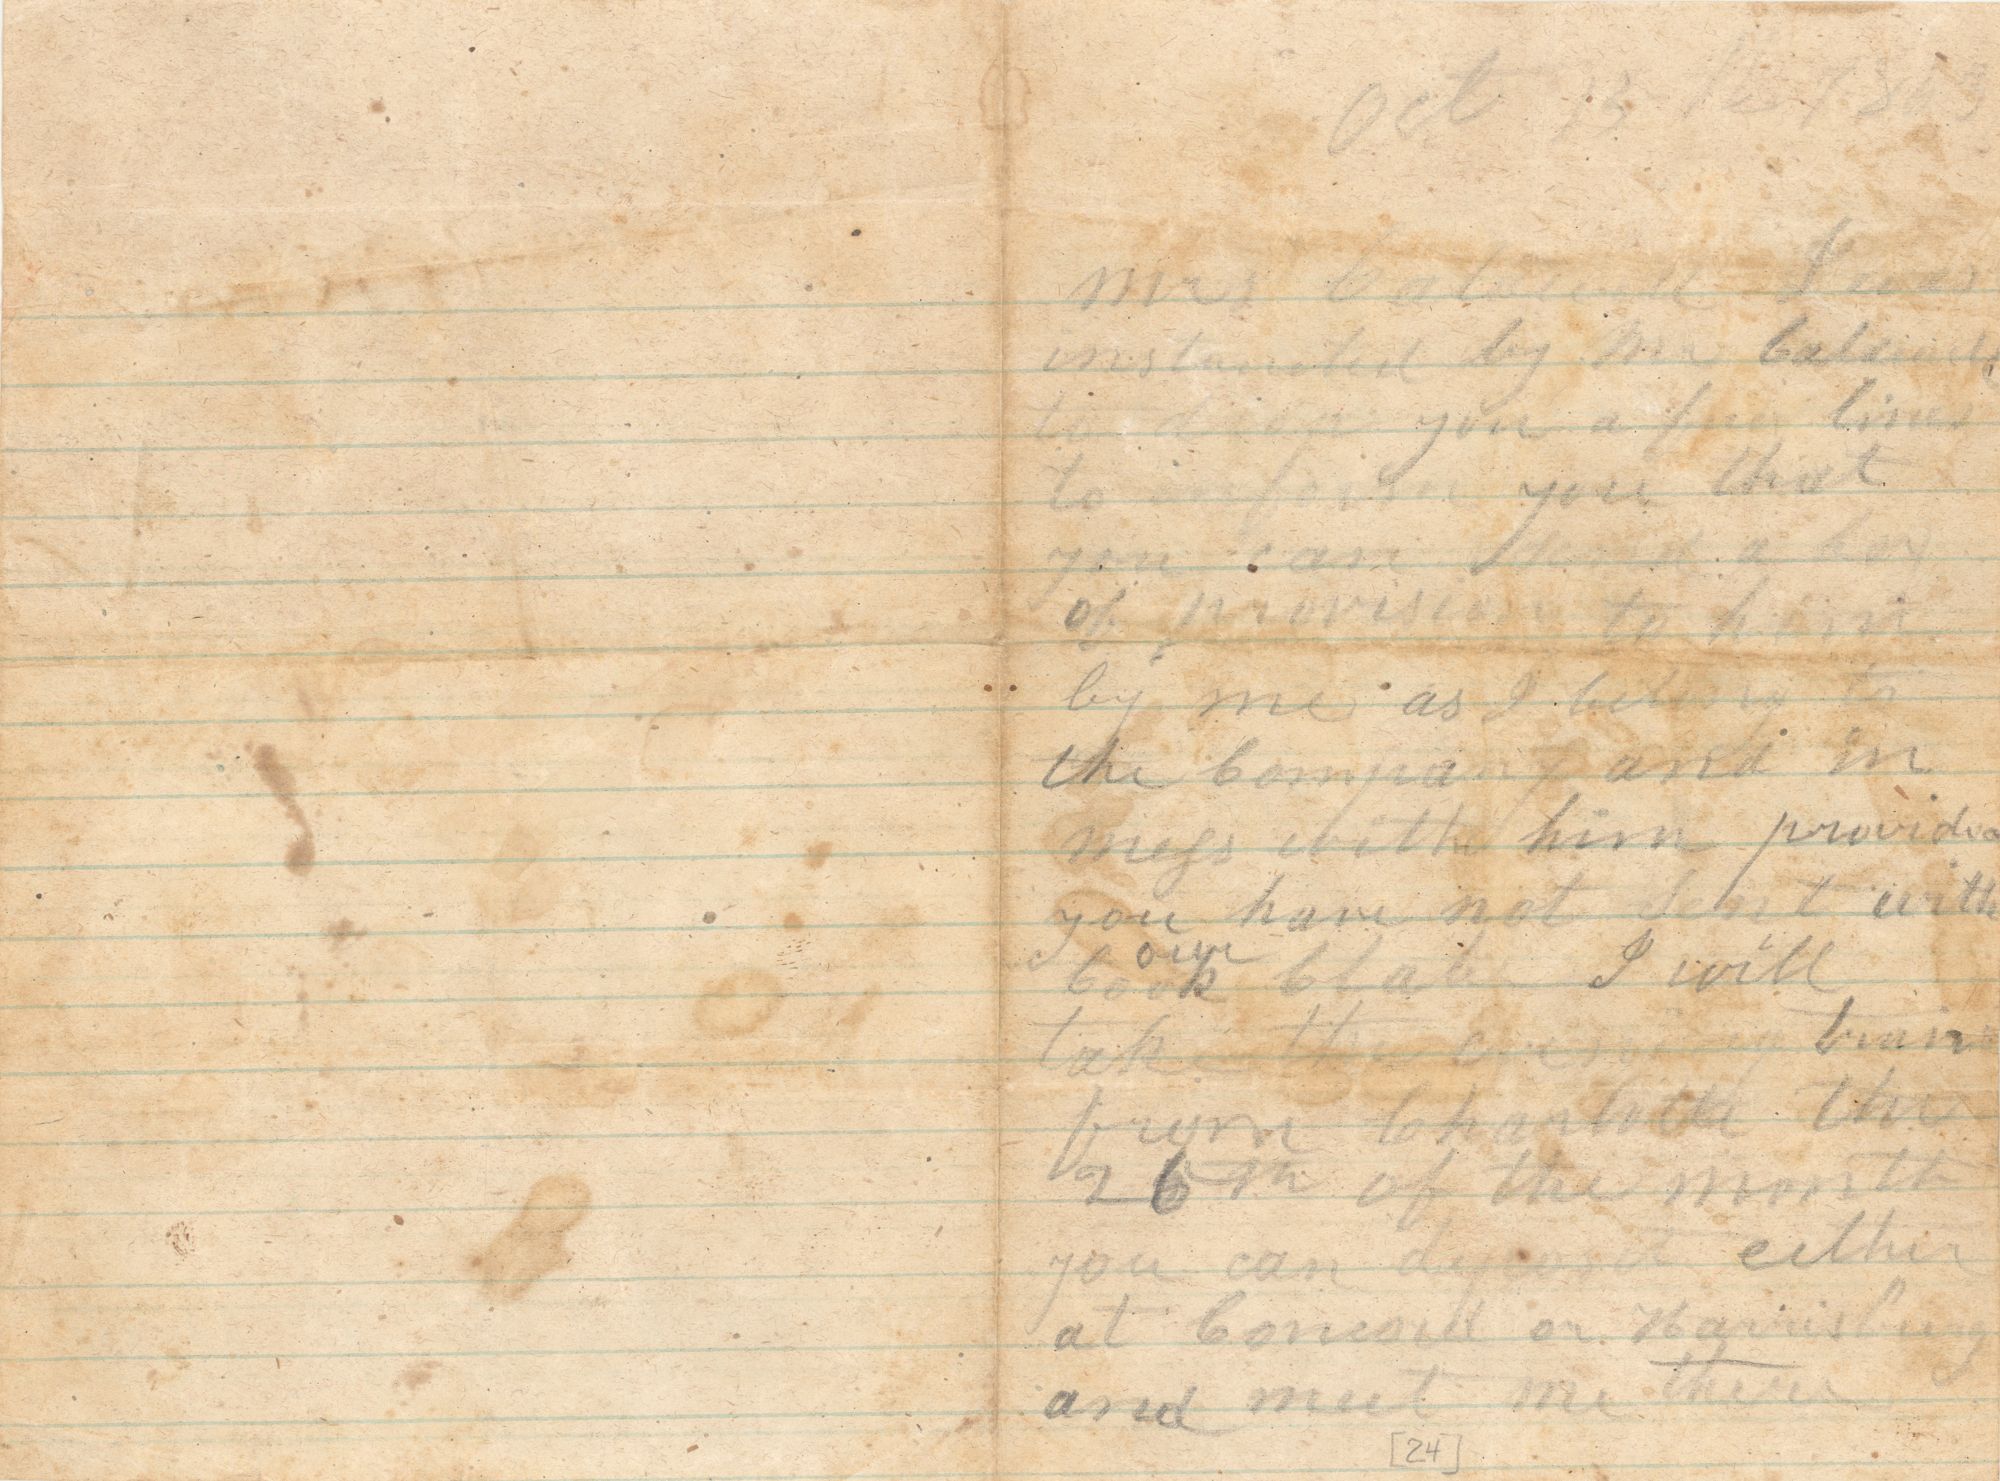 Oct 13 the 1863
Mrs Caldwell I was
instructed by Mr Caldwell
to drop you a few lines
to inform you that
you can send a box
of provision to him
by me as I belong to
the Company and in
megs with him provided
you have not sent with
our
Cook I will
take the evening train
from Charlotte the
26th of the month
you can deposit either
at Concord or Harrisburg
and meet me there
[24]